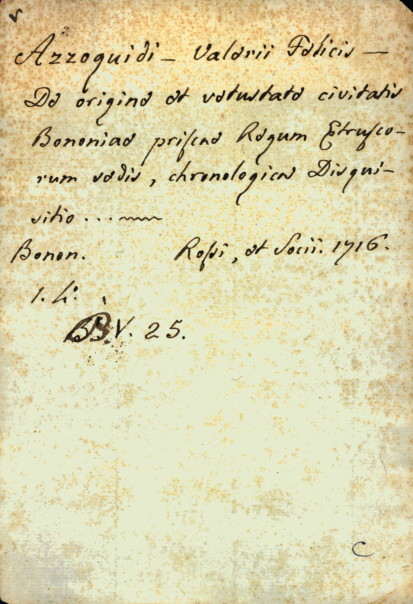 Azzoguidi – Valerii Felicis –
De origine et vetustate civitatis
Bononiae priscae Regum Etrusco-
rum sedis, chronologica Disqui-
sitio...
Bonon. Rossi, et Socii. 1716.
1. 4º
B.V. 25.
C